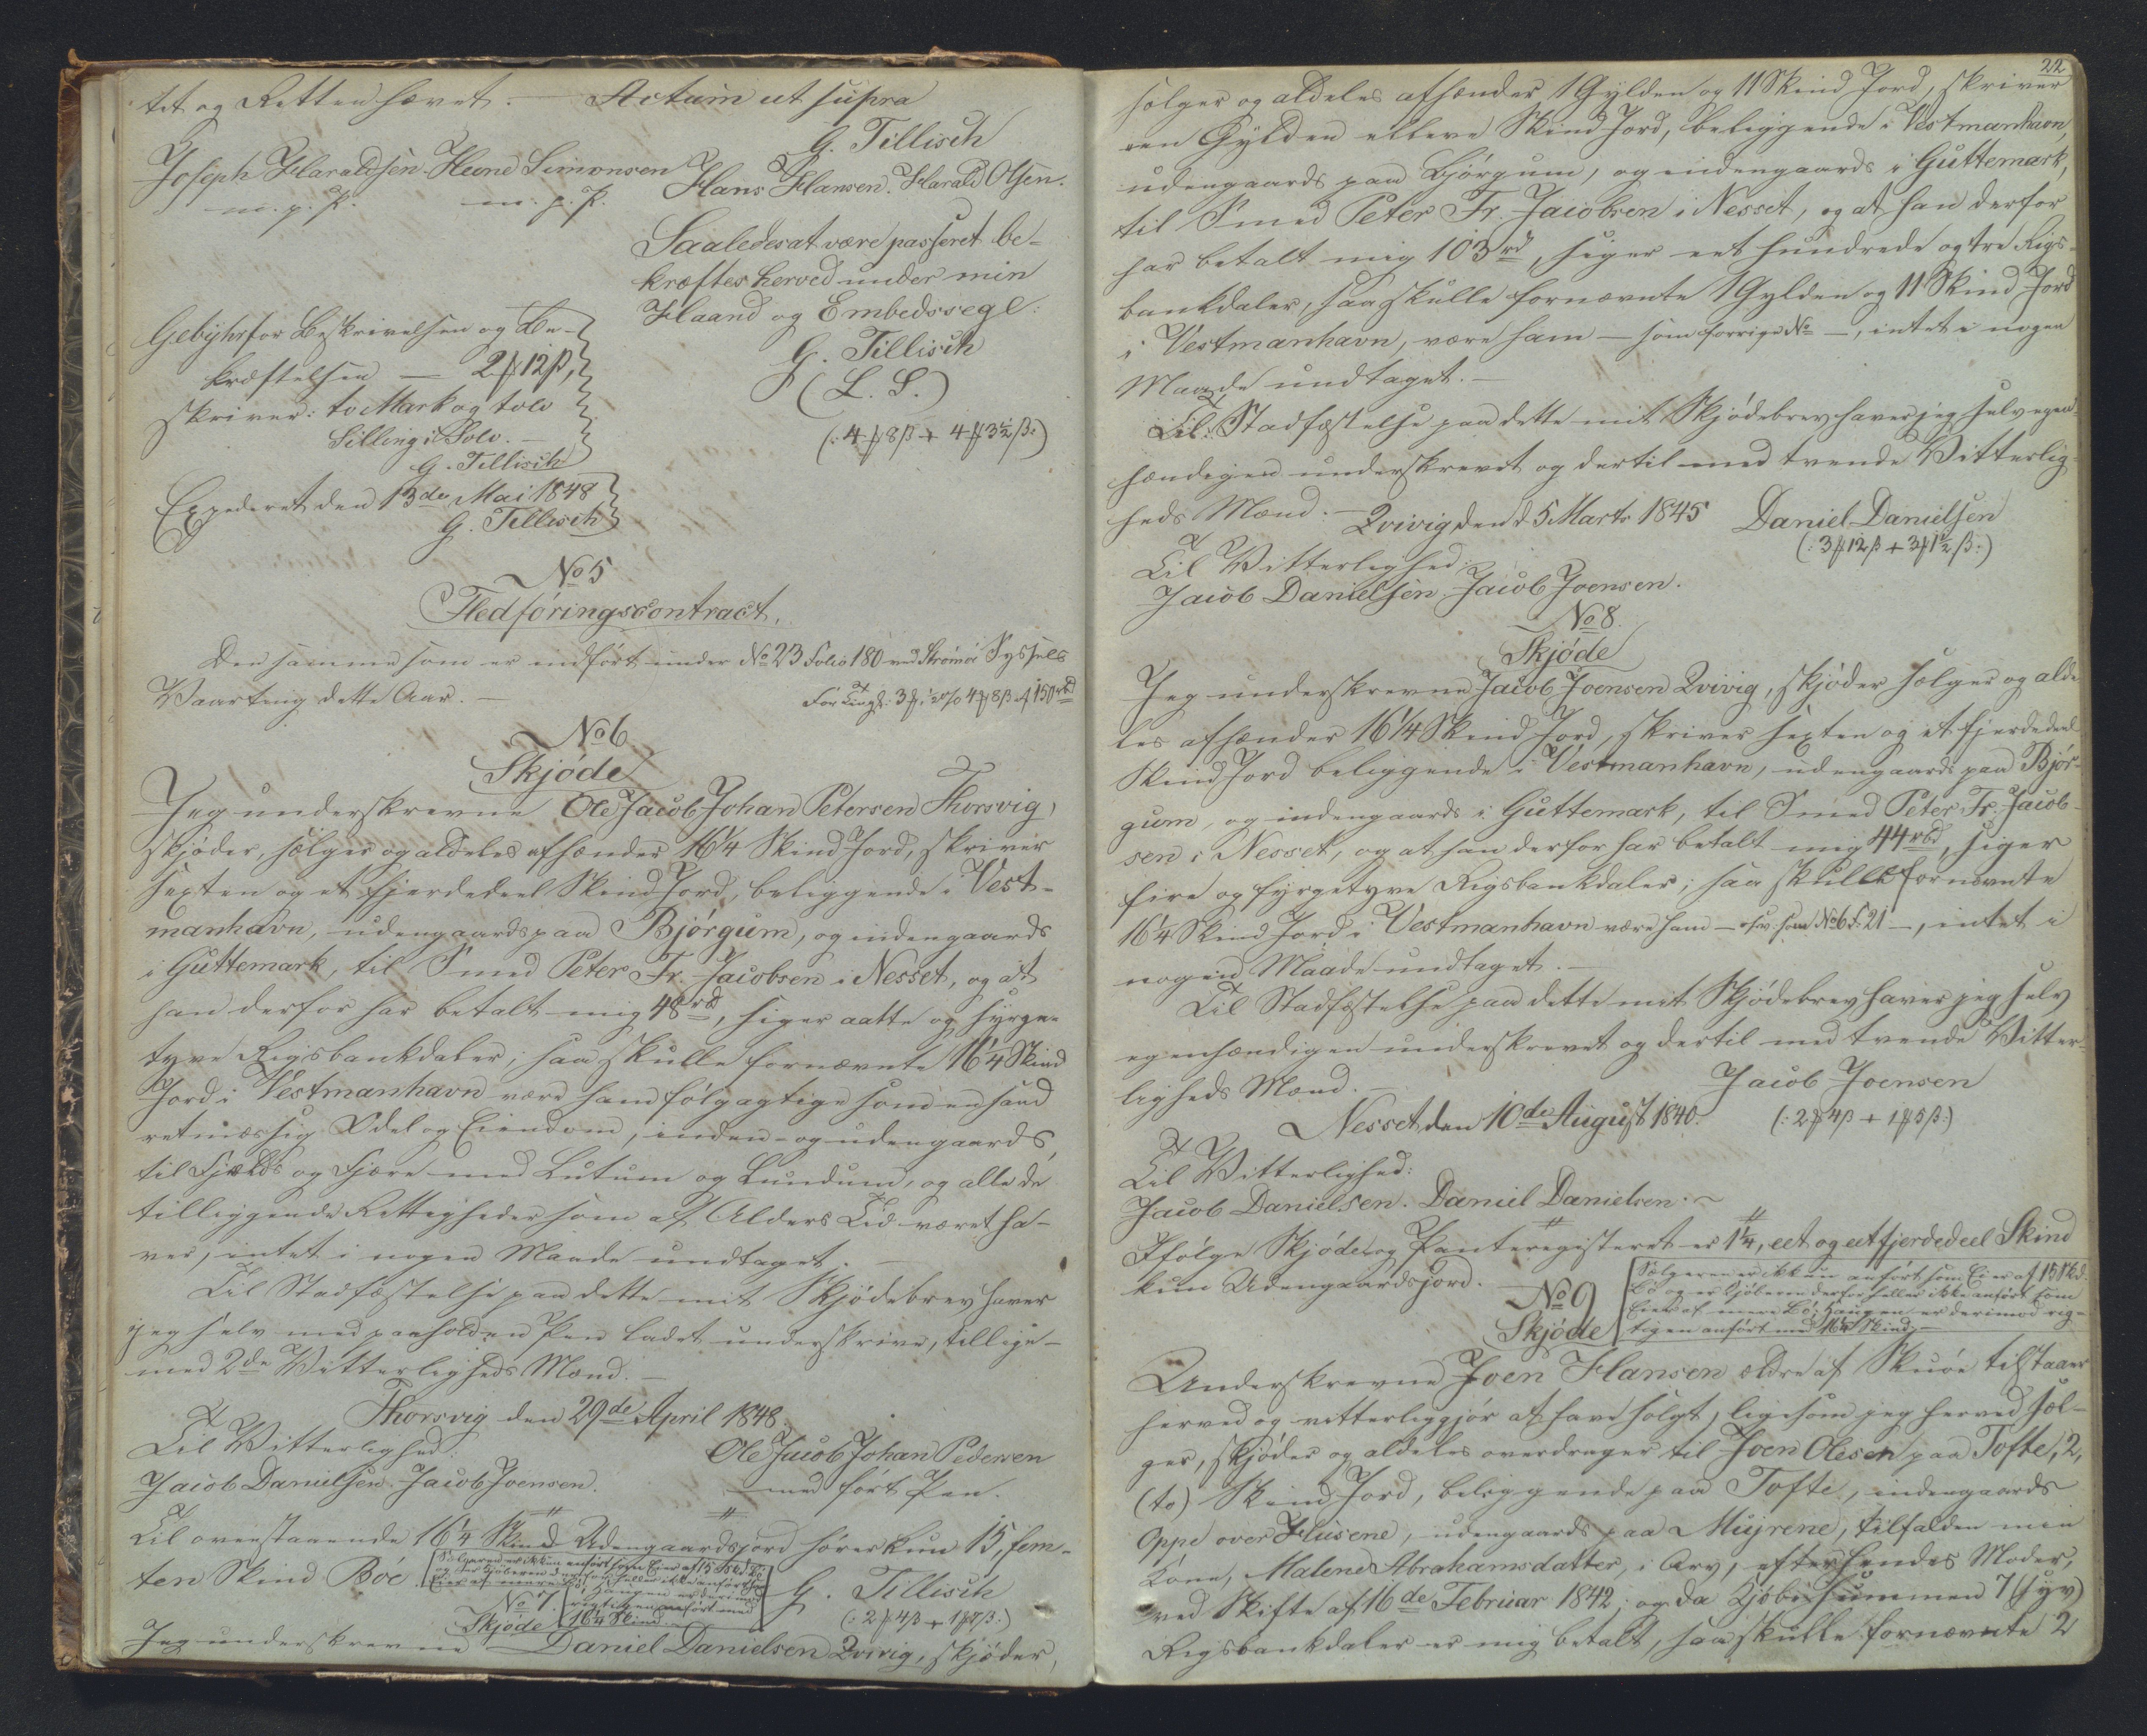 tet og Retten hævet. — Actum ut supra
G. Tillisch
Joseph Haraldsen. Heine Simonsen Hans Hansen. Harald Olsen.
m. p. P. m. p. P.
Saaledes at være passeret be-
kræftes herved under min
Haand og Embedssegl.
G. Tillisch
(L. S.)
(: 4 ℔ 8 β + 4 ℔ 3½ β :)
Gebyhr for Beskrivelsen og Be-
kræftelsen — 2 ℔ 12 β,
skriver: to Mark og tolv
Silling i Solv. —
G. Tillisch
Expederet den 13de Mai 1848
G. Tillisch
No 5
Fledføringscontract.
Den samme som er indført under No 23 Folio 180 ved Strömöe Syssels
Vaarting dette Aar. —
For Tingl: 3 ℔, ½ % 4 ℔ 8 β af 150 rbd
No 6
Skjøde
Jeg underskrevne Ole Jacob Johan Petersen Thorsvig,
skjøder, sælger og aldeles afhænder 16¼ Skind Jord, skriver
sexten og et fjerdedeel Skind Jord, beliggende i Vest-
manhavn, udengaards paa Bjørgum, og indengaards
i Guttemark, til Smed Peter Fr. Jacobsen i Nesset, og at
han derfor har betalt mig 48 rbd, siger aatte og fyrge-
tyve Rigsbankdaler; saa skulle fornævnte 16¼ Skind
Jord i Vestmanhavn være ham følgagtige som en sand
retmæssig Odel og Eiendom, inden- og udengaards,
til Fjelds og Fjære med Lutum og Lundum, og alle de
tilliggende Rettigheder som af Alders Tid været ha-
ver, intet i nogen Maade undtaget. —
Til Stadfæstelse paa dette mit Skjødebrev haver
jeg selv med paaholden Pen ladet underskrive, tillige-
med 2de Vitterligheds Mænd. —
Thorsvig den 29de April 1848.
Til Vitterlighed:
Ole Jacob Johan Pedersen
Jacob Danielsen. Jacob Joensen.
med ført Pen.
Til ovenstaaende 16¼ Skind Udengaardsjord hører kun 15, fem-
ten Skind Bøe.
Sælgeren er ikkun anført som Eier af 15 Skd. Bø
og er Kjøberen derfor heller ikke anført som
Eier af mere Bø, Haugen er derimod
rigtigen anført med
16¼ Skind. —
G. Tillisch
(: 2 ℔ 4 β + 1 ℔ 7 β :)
No 7.
Skjøde
Jeg underskrevne Daniel Danielsen Qvivig, skjøder,
22
sælger og aldeles afhænder 1 Gylden og 11 Skind Jord, skriver
een Gylden elleve Skind Jord, beliggende i Vestmanhavn,
udengaards paa Bjørgum, og indengaards i Guttemark,
til Smed Peter Fr. Jacobsen i Nesset, og at han derfor
har betalt mig 103 rd, siger eet hundrede og tre Rigs-
bankdaler, saa skulle fornævnte 1 Gylden og 11 Skind Jord
i Vestmanhavn, være ham — som forrige No —, intet i nogen
Maade undtaget. —
Til Stadfæstelse paa dette mit Skjødebrev haver jeg selv egen-
hændigen underskrevet og dertil med tvende Vitterlig-
heds Mænd. —
Qvivig, den d 5 Marts 1845 Daniel Danielsen
(: 3 ℔ 12 β + 3 ℔ 1½ β :)
Til Vitterlighed:
Jacob Danielsen Jacob Joensen.
No 8.
Skjøde
Jeg underskrevne Jacob Joensen Qvivig, skjøder sælger og alde-
les afhænder 16¼ Skind Jord, skriver sexten og et fjerdedeel
Skind Jord beliggende i Vestmanhavn, udengaards paa Bjør-
gum, og indengaards i Guttemark, til Smed Peter Fr. Jacob-
sen i Nesset, og at han derfor har betalt mig 44 rbd, siger
fire og fyrgetyve Rigsbankdaler; saa skulle fornævnte
16¼ Skind Jord i Vestmanhavn være ham — osv. som No 6 F. 21 —, intet i
nogen Maade undtaget. —
Til Stadfæstelse paa dette mit Skjødebrev haver jeg selv
egenhændigen underskrevet og dertil med tvende Vitter-
ligheds Mænd. —
Jacob Joensen
Nesset den 10de August 1840.
(: 2 ℔ 4 β + 1 ℔ 5 β :)
Til Vitterlighed:
Jacob Danielsen. Daniel Danielsen. —
Ifølge Skjøde og Panteregisteret er 1¼, eet og eet fjerdedeel Skind
kun Udengaardsjord. —
Sælgeren er ikkun anført som Eier af 15 Skd.
Bø og er Kjøberen derfor heller ikke anført som
Eier af mere Bø; Haugen er derimod rig-
tigen anført med 16¼ Skind. —
No 9
Skjøde
Underskrevne Joen Hansen ældre af Skuøe tilstaaer
herved og vitterliggjør at have solgt, ligesom jeg herved sæl-
ger, skjøder og aldeles overdrager til Joen Olesen paa Tofte, 2,
(to) Skind Jord, beliggende paa Tofte, indengaards
Oppe over Husene, udengaards paa Mujrene, tilfalden min
Kone, Malene Abrahamsdatter, i Arv, efter hendes Moder,
ved Skifte af 16de Februar 1842; og da Kjøbesummen 7 (syv)
Rigsbankdaler er mig betalt, saa skulle fornævnte 2